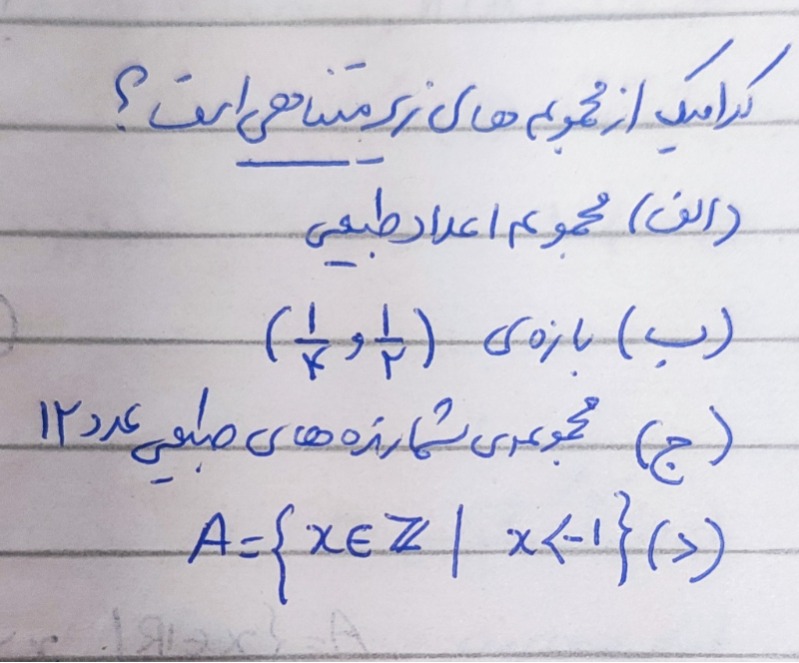 کدامیک از مجموعه های زیر متناهی است؟
(الف) مجموعه اعداد طبیعی
(ب) بازه‌ی (۱/۴ و ۱/۲)
(ج) مجموعه‌ی شمارنده های طبیعی عدد ۱۲
(د) A={x∈ℤ | x<-1}